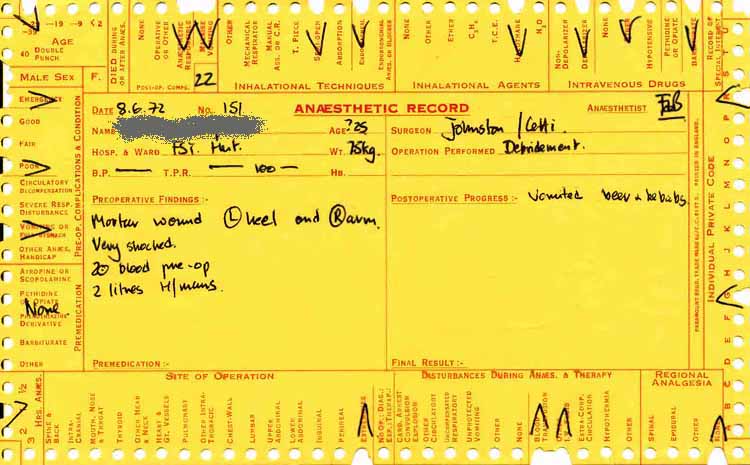 -19 -9 <2
-39
40
AGE
DOUBLE PUNCH
DIED DURING OR AFTER ANÆS.
NONE
OPERATIVE OR OTHER
ANÆSTHETIC RESPONSIBLE
VOMITING
OTHER
MECHANICAL RESPIRATOR
MANUAL ASS. OR C.R.
T. PIECE
ABSORPTION
ENDOBRONCHIAL ANÆS. OR BLOCKER
NONE
OTHER
ETHER
C₃H₆
T.C.E.
HALOTHANE
N₂O
NON-DEPOLARIZER
DEPOLARIZER
OTHER
HYPOTENSIVE
PETHIDINE OR OPIATE
BARBITURATE
RECORD OF SPECIAL INTEREST
MALE SEX F.
POST-OP. COMPS.
22
INHALATIONAL TECHNIQUES
INHALATIONAL AGENTS
INTRAVENOUS DRUGS
EMERGENCY
GOOD
FAIR
POOR
CIRCULATORY DECOMPENSATION
SEVERE RESP. DISTURBANCE
VOMITING OR FULL STOMACH
OTHER ANÆS. HANDICAP
PRE-OP. COMPLICATIONS & CONDITION
ATROPINE OR SCOPOLAMINE
PETHIDINE OR OPIATE
None
PHENOTHIAZINE DERIVATIVE
BARBITURATE
OTHER
PREMEDICATION
DATE 8.6.72 NO. 151 ANAESTHETIC RECORD ANAESTHETIST
NAME AGE ?25 SURGEON Johnston / Cetti.
HOSP. & WARD FST. Hurt. WT. 75kg. OPERATION PERFORMED Debridement.
B.P. — T.P.R. — 100 — HB.
PREOPERATIVE FINDINGS :- POSTOPERATIVE PROGRESS :- Vomited beer + kebabs
Mortar wound Ⓛ heel and Ⓡ arm.
Very shocked.
20 blood pre-op
2 litres H/manns.
PREMEDICATION :- FINAL RESULT :-
INDIVIDUAL PRIVATE CODE
PRINTED IN ENGLAND.
U T S
F G H J K L M N O P
A B C D E
½ 2 3
HRS. ANÆS.
SITE OF OPERATION
DISTURBANCES DURING ANÆS. & THERAPY
REGIONAL ANALGESIA
SPINE & BACK
INTRA-CRANIAL
MOUTH, NOSE & THROAT
THYROID
OTHER HEAD & NECK
HEART & GT. VESSELS
PULMONARY
OTHER INTRA-THORACIC
CHEST-WALL
LUMBAR
UPPER ABDOMINAL
LOWER ABDOMINAL
INGUINAL
PERINEAL
EXTREMITIES
CARD. ARREST
CONVULSION
EXPLOSION
OTHER CIRCULATORY
UNEXPECTED RESPIRATORY
UNEXPECTED VOMITING
OTHER
NONE
BLOOD TRANSFUSION
EXTRA-CORP. CIRCULATION
HYPOTHERMIA
OTHER
SPINAL
EPIDURAL
OTHER